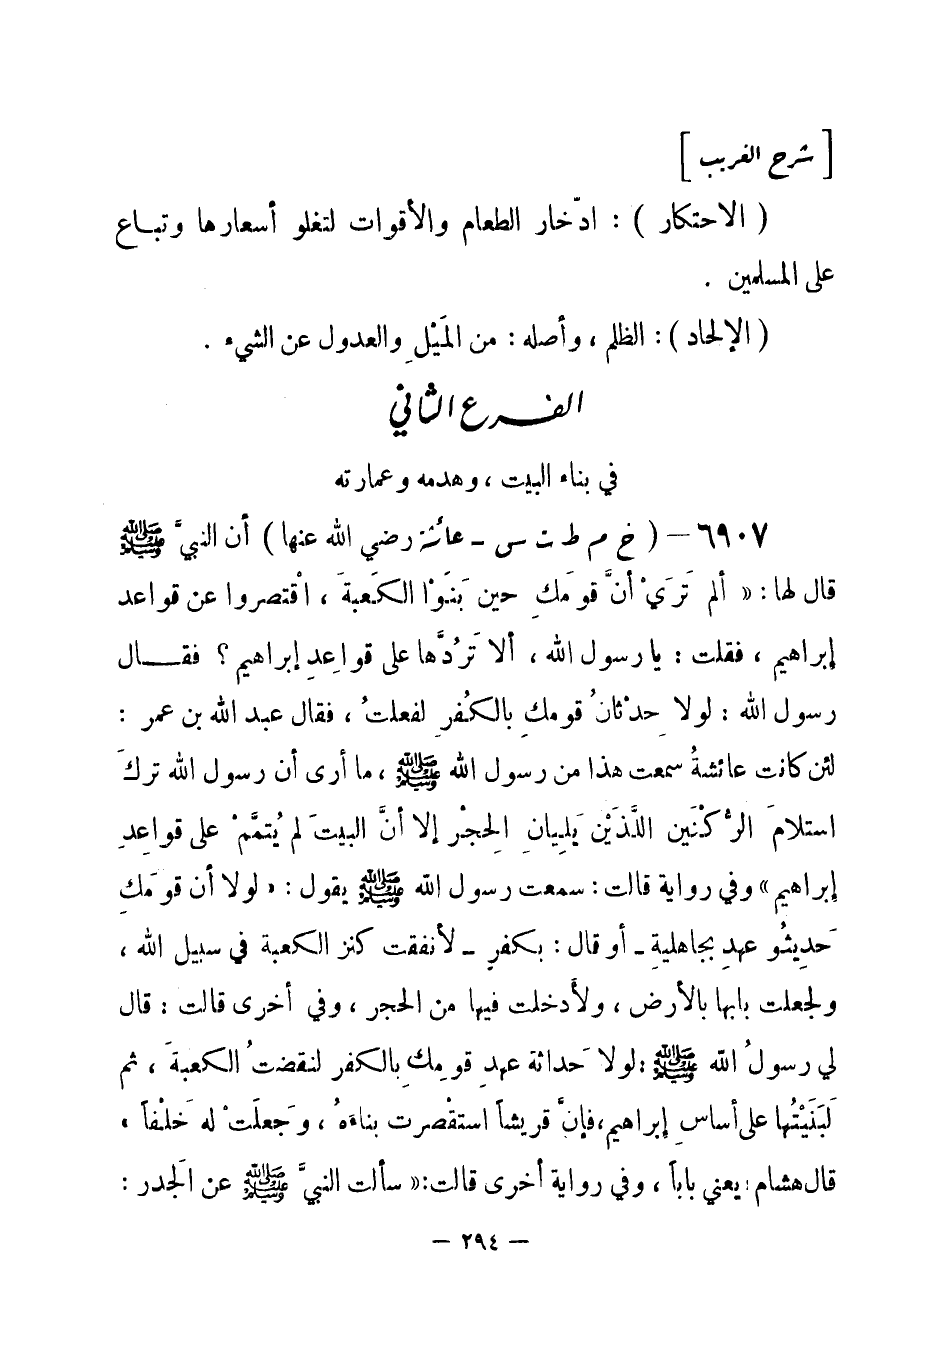 [ شرح الغريب ]
( الاحتكار ) : ادّخار الطعام والأقوات لتغلو أسعارها وتبـاع
على المسلمين .
( الإلحاد ) : الظلم ، وأصله : من المَيْلِ والعدول عن الشيء .
الفـرع الثاني
في بناء البيت ، وهدمه وعمارته
٦٩٠٧ – ( خ م ط ت س - عائشة رضي الله عنها ) أن النبيَّ ﷺ
قال لها : « ألم تَرَيْ أنَّ قومَكِ حين بَنَوْا الكَعبةَ ، اقْتصروا عن قواعد
إبراهيم ، فقلت : يا رسول الله ، ألا تَرُدَّها على قواعِدِ إبراهيم ؟ فقـــال
رسول الله : لولا حِدْثانُ قومِكِ بالكُفرِ لفعلتُ ، فقال عبد الله بن عمر :
لئن كانت عائشةُ سمعت هذا من رسول الله ﷺ ، ما أرى أن رسول الله تركَ
استلامَ الرُّكْنَين اللَّذَيْن يَلِيانِ الحِجْر إلا أنَّ البيتَ لم يُتمَّمْ على قواعِدِ
إبراهيم » وفي رواية قالت : سمعت رسول الله ﷺ يقول : « لولا أن قومَكِ
حَدِيثُو عهدٍ بجاهليةِ - أو قال : بكفرٍ - لأنفقت كنز الكعبة في سبيل الله ،
ولجعلت بابها بالأرض ، ولأَدخلت فيها من الحجر ، وفي أخرى قالت : قال
لي رسولُ الله ﷺ : لولا حَداثة عهدِ قومِكِ بالكفر لنقضتُ الكعبةَ ، ثم
لَبَنَيْتُها على أساسِ إبراهيم ، فإنَّ قريشاً استقْصرت بناءَهُ ، وَجعلَتْ له خَلْفاً ،
قال هشام : يعني باباً ، وفي رواية أخرى قالت : « سألت النبيَّ ﷺ عن الجَدر :
– ٢٩٤ –